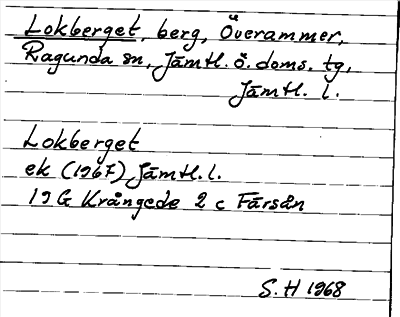 Lokberget, berg, Överammer,
Ragunda sn, Jämtl. ö. doms. tg,
Jämtl. l.
Lokberget
ek (1967) Jämtl. l.
19 G Krångede 2 c Färsån
S. H 1968